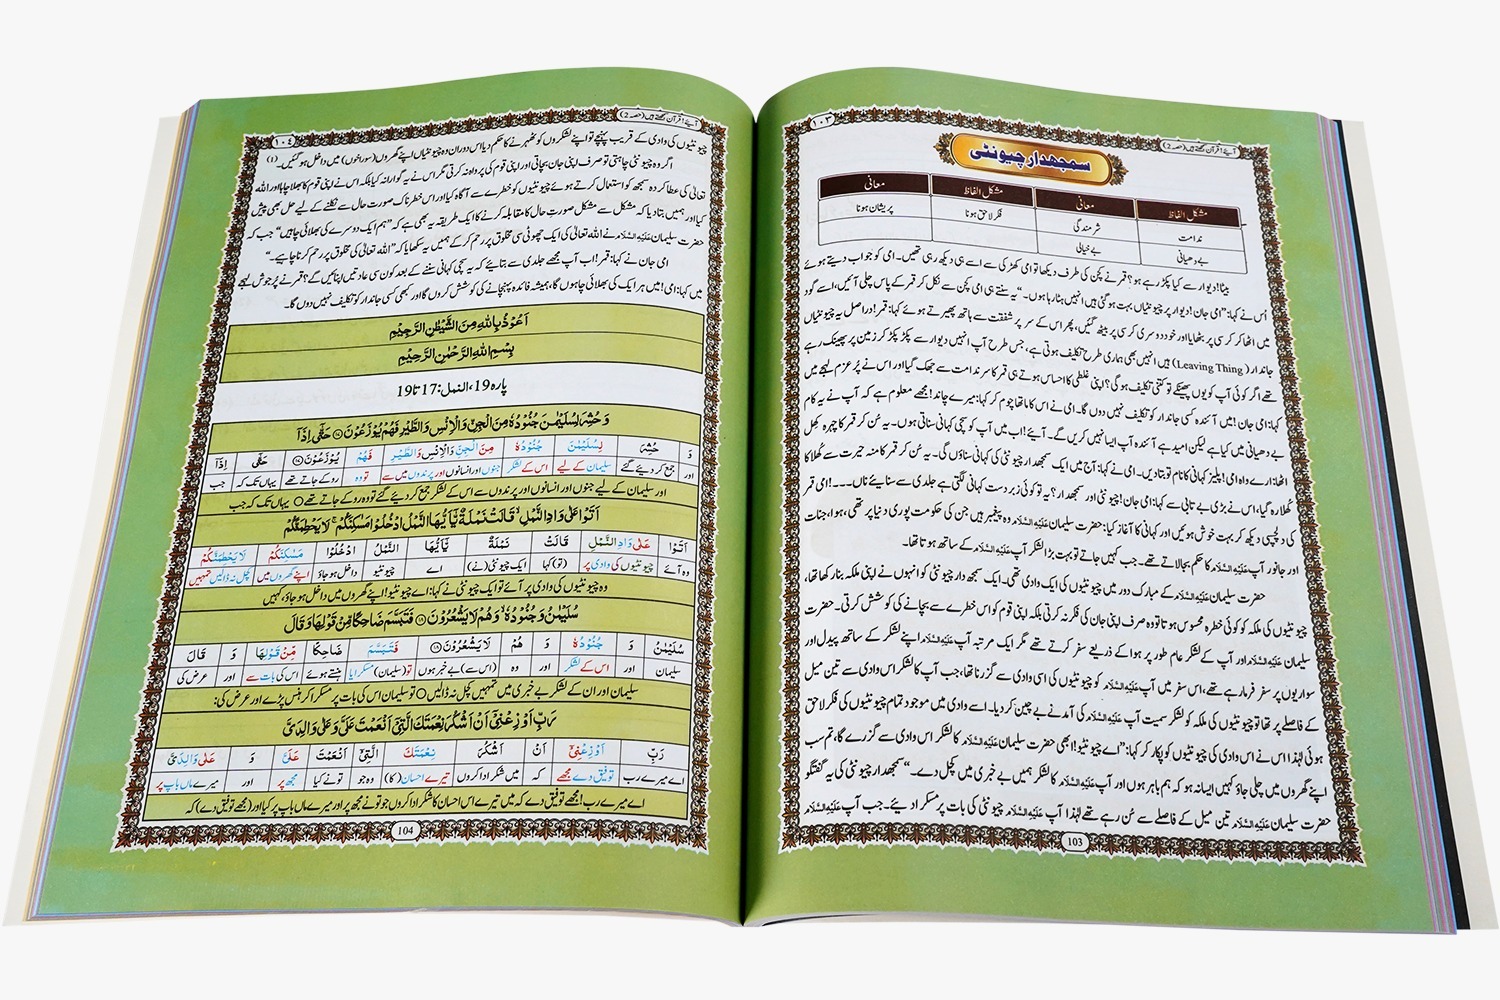 آیئے! قرآن سمجھتے ہیں (حصہ 2)
۱۰۳
سمجھدار چیونٹی
مشکل الفاظ معانی مشکل الفاظ معانی
ندامت شرمندگی فکر لاحق ہونا پریشان ہونا
بے دھیانی بے خیالی
بیٹا! دیوار سے کیا پکڑ رہے ہو؟ قمر نے کچن کی طرف دیکھا تو امی کھڑکی سے اسے ہی دیکھ رہی تھیں۔ امی کو جواب دیتے ہوئے
اُس نے کہا: ”امی جان! دیوار پر چیونٹیاں بہت ہو گئی ہیں انہیں ہٹا رہا ہوں۔“ یہ سنتے ہی امی کچن سے نکل کر قمر کے پاس چلی آئیں، اسے گود
میں اٹھا کر کرسی پر بٹھایا اور خود دوسری کرسی پر بیٹھ گئیں، پھر اس کے سر پر شفقت سے ہاتھ پھیرتے ہوئے کہا: قمر! دراصل یہ چیونٹیاں
جاندار (Leaving Thing) ہیں انہیں بھی ہماری طرح تکلیف ہوتی ہے، جس طرح آپ انہیں دیوار سے پکڑ پکڑ کر زمین پر پھینک رہے
تھے اگر کوئی آپ کو یوں پھینکے تو کتنی تکلیف ہوگی؟ اپنی غلطی کا احساس ہوتے ہی قمر کا سر ندامت سے جھک گیا اور اس نے پُر عزم لہجے میں
کہا: امی جان! میں آئندہ کسی جاندار کو تکلیف نہیں دوں گا۔ امی نے اس کا ماتھا چوم کر کہا: میرے چاند! مجھے معلوم ہے کہ آپ نے یہ کام
بے دھیانی میں کیا ہے لیکن امید ہے آئندہ آپ ایسا نہیں کریں گے۔ آیئے! اب میں آپ کو سچی کہانی سناتی ہوں۔ یہ سُن کر قمر کا چہرہ کھل
اٹھا: ارے واہ امی! پلیز کہانی کا نام تو بتا دیں۔ امی نے کہا: آج میں ایک سمجھدار چیونٹی کی کہانی سناؤں گی۔ یہ سُن کر قمر کا منہ حیرت سے کھلا کا
کھلا رہ گیا، اس نے بڑی بے تابی سے کہا: امی جان! چیونٹی اور سمجھدار؟ یہ تو کوئی زبردست کہانی لگتی ہے جلدی سے سنایئے ناں۔۔۔! امی قمر
کی دلچسپی دیکھ کر بہت خوش ہوئیں اور کہانی کا آغاز کیا: حضرت سلیمان عَلَیْہِ السَّلَام وہ پیغمبر ہیں جن کی حکومت پوری دنیا پر تھی، ہوا، جنات
اور جانور آپ عَلَیْہِ السَّلَام کا حکم بجالاتے تھے۔ جب کہیں جاتے تو بہت بڑا لشکر آپ عَلَیْہِ السَّلَام کے ساتھ ہوتا تھا۔
حضرت سلیمان عَلَیْہِ السَّلَام کے مبارک دور میں چیونٹیوں کی ایک وادی تھی۔ ایک سمجھدار چیونٹی کو انہوں نے اپنی ملکہ بنا رکھا تھا،
چیونٹیوں کی ملکہ کو کوئی خطرہ محسوس ہوتا تو وہ صرف اپنی جان کی فکر نہ کرتی بلکہ اپنی قوم کو اس خطرے سے بچانے کی کوشش کرتی۔ حضرت
سلیمان عَلَیْہِ السَّلَام اور آپ کے لشکر عام طور پر ہوا کے ذریعے سفر کرتے تھے مگر ایک مرتبہ آپ عَلَیْہِ السَّلَام اپنے لشکر کے ساتھ پیدل اور
سواریوں پر سفر فرما رہے تھے، اس سفر میں آپ عَلَیْہِ السَّلَام کو چیونٹیوں کی اسی وادی سے گزرنا تھا، جب آپ کا لشکر اس وادی سے تین میل
کے فاصلے پر تھا تو چیونٹیوں کی ملکہ کو لشکر سمیت آپ عَلَیْہِ السَّلَام کی آمد نے بے چین کر دیا۔ اسے وادی میں موجود تمام چیونٹیوں کی فکر لاحق
ہوئی لہٰذا اس نے اس وادی کی چیونٹیوں کو پکار کر کہا: ”اے چیونٹیو! ابھی حضرت سلیمان عَلَیْہِ السَّلَام کا لشکر اس وادی سے گزرے گا، تم سب
اپنے گھروں میں چلی جاؤ کہیں ایسا نہ ہو کہ ہم باہر ہوں اور آپ عَلَیْہِ السَّلَام کا لشکر ہمیں بے خبری میں کچل دے۔“ سمجھدار چیونٹی کی یہ گفتگو
حضرت سلیمان عَلَیْہِ السَّلَام تین میل کے فاصلے سے سُن رہے تھے لہٰذا آپ عَلَیْہِ السَّلَام چیونٹی کی بات پر مسکرا دیئے۔ جب آپ عَلَیْہِ السَّلَام
103
آیئے! قرآن سمجھتے ہیں (حصہ 2)
۱۰٤
چیونٹیوں کی وادی کے قریب پہنچے تو اپنے لشکروں کو ٹھہرنے کا حکم دیا اس دوران وہ چیونٹیاں اپنے گھروں (سوراخوں) میں داخل ہو گئیں۔ (1)
اگر وہ چیونٹی چاہتی تو صرف اپنی جان بچاتی اور اپنی قوم کی پرواہ نہ کرتی مگر اس نے یہ گوارا نہ کیا بلکہ اس نے اپنی قوم کا بھلا چاہا اور اللہ
تعالٰی کی عطا کردہ سمجھ کو استعمال کرتے ہوئے چیونٹیوں کو خطرے سے آگاہ کیا اور اس خطرناک صورت حال سے نکلنے کے لیے حل بھی پیش
کیا اور ہمیں بتا دیا کہ مشکل سے مشکل صورت حال کا مقابلہ کرنے کا ایک طریقہ یہ بھی ہے کہ ”ہم ایک دوسرے کی بھلائی چاہیں“ جب کہ
حضرت سلیمان عَلَیْہِ السَّلَام نے اللہ تعالٰی کی ایک چھوٹی سی مخلوق پر رحم کر کے ہمیں یہ سکھایا کہ ”اللہ تعالٰی کی مخلوق پر رحم کرنا چاہیے۔“
امی جان نے کہا: قمر! اب آپ مجھے جلدی سے بتایئے کہ یہ سچی کہانی سننے کے بعد کون سی عادتیں اپنائیں گے؟ قمر نے پُر جوش لہجے
میں کہا: امی! میں ہر ایک کی بھلائی چاہوں گا، ہمیشہ فائدہ پہنچانے کی کوشش کروں گا اور کبھی کسی جاندار کو تکلیف نہیں دوں گا۔
اَعُوْذُ بِاللّٰهِ مِنَ الشَّيْطٰنِ الرَّجِيْمِ
بِسْمِ اللّٰهِ الرَّحْمٰنِ الرَّحِيْمِ
پارہ 19، النمل: 17 تا 19
وَ حُشِرَ لِسُلَيْمٰنَ جُنُوْدُهٗ مِنَ الْجِنِّ وَ الْاِنْسِ وَ الطَّيْرِ فَهُمْ يُوْزَعُوْنَ ﴿۱۷﴾ حَتّٰۤى اِذَاۤ
وَ حُشِرَ لِسُلَيْمٰنَ جُنُوْدُهٗ مِنَ الْجِنِّ وَالْاِنْسِ وَالطَّيْرِ فَهُمْ يُوْزَعُوْنَ ﴿۱۷﴾ حَتّٰۤى اِذَاۤ
اور جمع کر دیئے گئے سلیمان کے لیے اس کے لشکر جنوں اور انسانوں اور پرندوں میں سے تو وہ روکے جاتے تھے یہاں تک کہ جب
اور سلیمان کے لیے جنوں اور انسانوں اور پرندوں سے اس کے لشکر جمع کر دیے گئے تو وہ روکے جاتے تھے ○ یہاں تک کہ جب
اَتَوْا عَلٰى وَادِ النَّمْلِ ۙ قَالَتْ نَمْلَةٌ يّٰۤاَيُّهَا النَّمْلُ ادْخُلُوْا مَسٰكِنَكُمْ ۚ لَا يَحْطِمَنَّكُمْ
اَتَوْا عَلٰى وَادِ النَّمْلِ قَالَتْ نَمْلَةٌ يّٰۤاَيُّهَا النَّمْلُ ادْخُلُوْا مَسٰكِنَكُمْ لَا يَحْطِمَنَّكُمْ
وہ آئے چیونٹیوں کی وادی پر (تو) کہا ایک چیونٹی (نے) اے چیونٹیو داخل ہو جاؤ اپنے گھروں میں کچل نہ ڈالیں تمہیں
وہ چیونٹیوں کی وادی پر آئے تو ایک چیونٹی نے کہا: اے چیونٹیو! اپنے گھروں میں داخل ہو جاؤ، کہیں
سُلَيْمٰنُ وَ جُنُوْدُهٗ ۙ وَ هُمْ لَا يَشْعُرُوْنَ ﴿۱۸﴾ فَتَبَسَّمَ ضَاحِكًا مِّنْ قَوْلِهَا وَ قَالَ
سُلَيْمٰنُ وَ جُنُوْدُهٗ وَ هُمْ لَا يَشْعُرُوْنَ ﴿۱۸﴾ فَتَبَسَّمَ ضَاحِكًا مِّنْ قَوْلِهَا وَ قَالَ
سلیمان اور اس کے لشکر اور وہ (اس سے) بے خبر ہوں تو (سلیمان) مسکرا دیا ہنستے ہوئے اس کی بات سے اور عرض کی
سلیمان اور ان کے لشکر بے خبری میں تمہیں کچل نہ ڈالیں ○ تو سلیمان اس کی بات پر مسکرا کر ہنس پڑے اور عرض کی:
رَبِّ اَوْزِعْنِيْۤ اَنْ اَشْكُرَ نِعْمَتَكَ الَّتِيْۤ اَنْعَمْتَ عَلَيَّ وَ عَلٰى وَالِدَيَّ
رَبِّ اَوْزِعْنِيْۤ اَنْ اَشْكُرَ نِعْمَتَكَ الَّتِيْۤ اَنْعَمْتَ عَلَيَّ وَ عَلٰى وَالِدَيَّ
اے میرے رب توفیق دے مجھے کہ میں شکر ادا کروں تیرے احسان (کا) وہ جو تو نے کیا مجھ پر اور میرے ماں باپ پر
اے میرے رب! مجھے توفیق دے کہ میں تیرے اس احسان کا شکر ادا کروں جو تو نے مجھ پر اور میرے ماں باپ پر کیا اور (مجھے توفیق دے) کہ
104